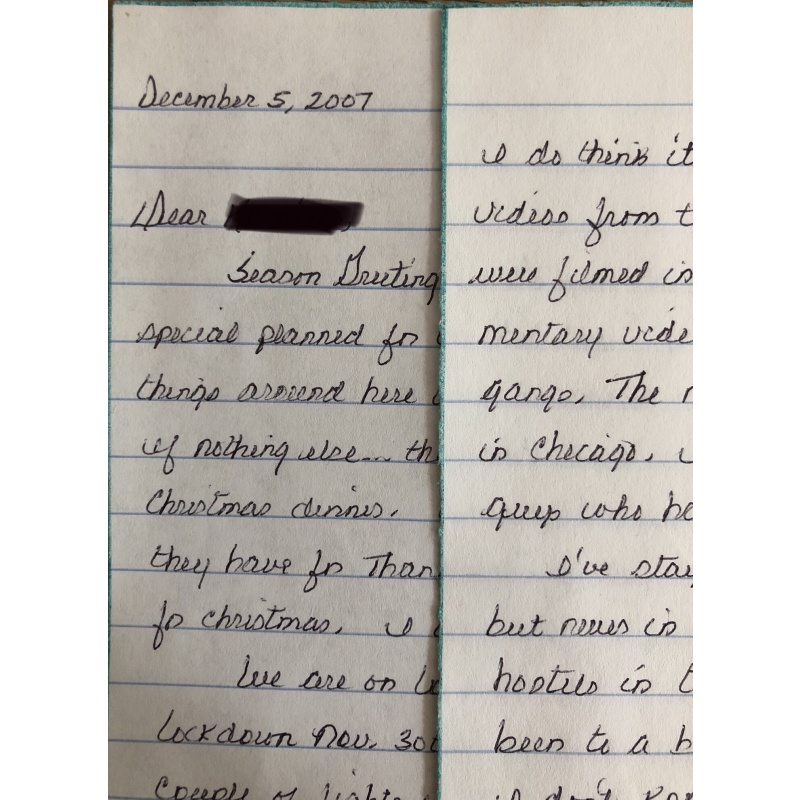 December 5, 2007
Dear
Season Greeting
special planned for
things around here
if nothing else... th
Christmas dinner.
they have for Than
for christmas. I
We are on
Lockdown Nov. 30
couple of fights
I do think it
videos from t
were filmed in
mentary vide
gangs. The
in Chicago.
guys who he
I've stay
but never in
hostels in t
been to a b
I don't